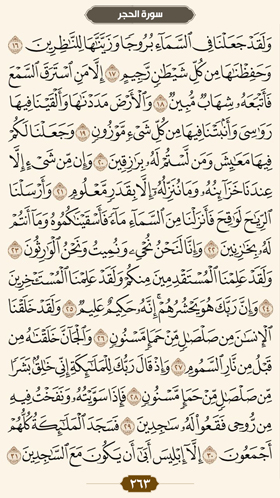 سورة الحجر
وَلَقَدْ جَعَلْنَا فِي ٱلسَّمَآءِ بُرُوجًا وَزَيَّنَّٰهَا لِلنَّٰظِرِينَ ١٦
وَحَفِظْنَٰهَا مِن كُلِّ شَيْطَٰنٍ رَّجِيمٍ ١٧ إِلَّا مَنِ ٱسْتَرَقَ ٱلسَّمْعَ
فَأَتْبَعَهُۥ شِهَابٌ مُّبِينٌ ١٨ وَٱلْأَرْضَ مَدَدْنَٰهَا وَأَلْقَيْنَا فِيهَا
رَوَٰسِيَ وَأَنۢبَتْنَا فِيهَا مِن كُلِّ شَيْءٍ مَّوْزُونٍ ١٩ وَجَعَلْنَا لَكُمْ
فِيهَا مَعَٰيِشَ وَمَن لَّسْتُمْ لَهُۥ بِرَٰزِقِينَ ٢٠ وَإِن مِّن شَيْءٍ إِلَّا
عِندَنَا خَزَآئِنُهُۥ وَمَا نُنَزِّلُهُۥٓ إِلَّا بِقَدَرٍ مَّعْلُومٍ ٢١ وَأَرْسَلْنَا
ٱلرِّيَٰحَ لَوَٰقِحَ فَأَنزَلْنَا مِنَ ٱلسَّمَآءِ مَآءً فَأَسْقَيْنَٰكُمُوهُ وَمَآ أَنتُمْ
لَهُۥ بِخَٰزِنِينَ ٢٢ وَإِنَّا لَنَحْنُ نُحْيِۦ وَنُمِيتُ وَنَحْنُ ٱلْوَٰرِثُونَ ٢٣
وَلَقَدْ عَلِمْنَا ٱلْمُسْتَقْدِمِينَ مِنكُمْ وَلَقَدْ عَلِمْنَا ٱلْمُسْتَـْٔخِرِينَ
٢٤ وَإِنَّ رَبَّكَ هُوَ يَحْشُرُهُمْ ۚ إِنَّهُۥ حَكِيمٌ عَلِيمٌ ٢٥ وَلَقَدْ خَلَقْنَا
ٱلْإِنسَٰنَ مِن صَلْصَٰلٍ مِّنْ حَمَإٍ مَّسْنُونٍ ٢٦ وَٱلْجَآنَّ خَلَقْنَٰهُ مِن
قَبْلُ مِن نَّارِ ٱلسَّمُومِ ٢٧ وَإِذْ قَالَ رَبُّكَ لِلْمَلَٰٓئِكَةِ إِنِّي خَٰلِقٌۢ بَشَرًا
مِّن صَلْصَٰلٍ مِّنْ حَمَإٍ مَّسْنُونٍ ٢٨ فَإِذَا سَوَّيْتُهُۥ وَنَفَخْتُ فِيهِ
مِن رُّوحِي فَقَعُوا۟ لَهُۥ سَٰجِدِينَ ٢٩ فَسَجَدَ ٱلْمَلَٰٓئِكَةُ كُلُّهُمْ
أَجْمَعُونَ ٣٠ إِلَّآ إِبْلِيسَ أَبَىٰٓ أَن يَكُونَ مَعَ ٱلسَّٰجِدِينَ ٣١
٢٦٣